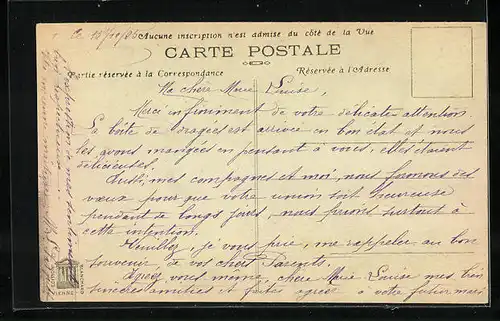 Ce 15/10/06
Aucune inscription n'est admise du côté de la Vue
CARTE POSTALE
Partie réservée à la Correspondance
Réservée à l'Adresse
Ma chère Marie Louise,
Merci infiniment de votre délicate attention.
La boîte de dragées est arrivée en bon état et nous
les avons mangées en pensant à vous, elles étaient
délicieuses!
Aussi, mes compagnes et moi, nous formons des
vœux pour que votre union soit heureuse
pendant de longs jours, nous prions surtout à
cette intention.
Veuillez, je vous prie, me rappeler au bon
souvenir de vos chers Parents.
Agréez vous même, chère Marie Louise mes très
sincères amitiés et faites agréer à votre futur mari
VIENNE